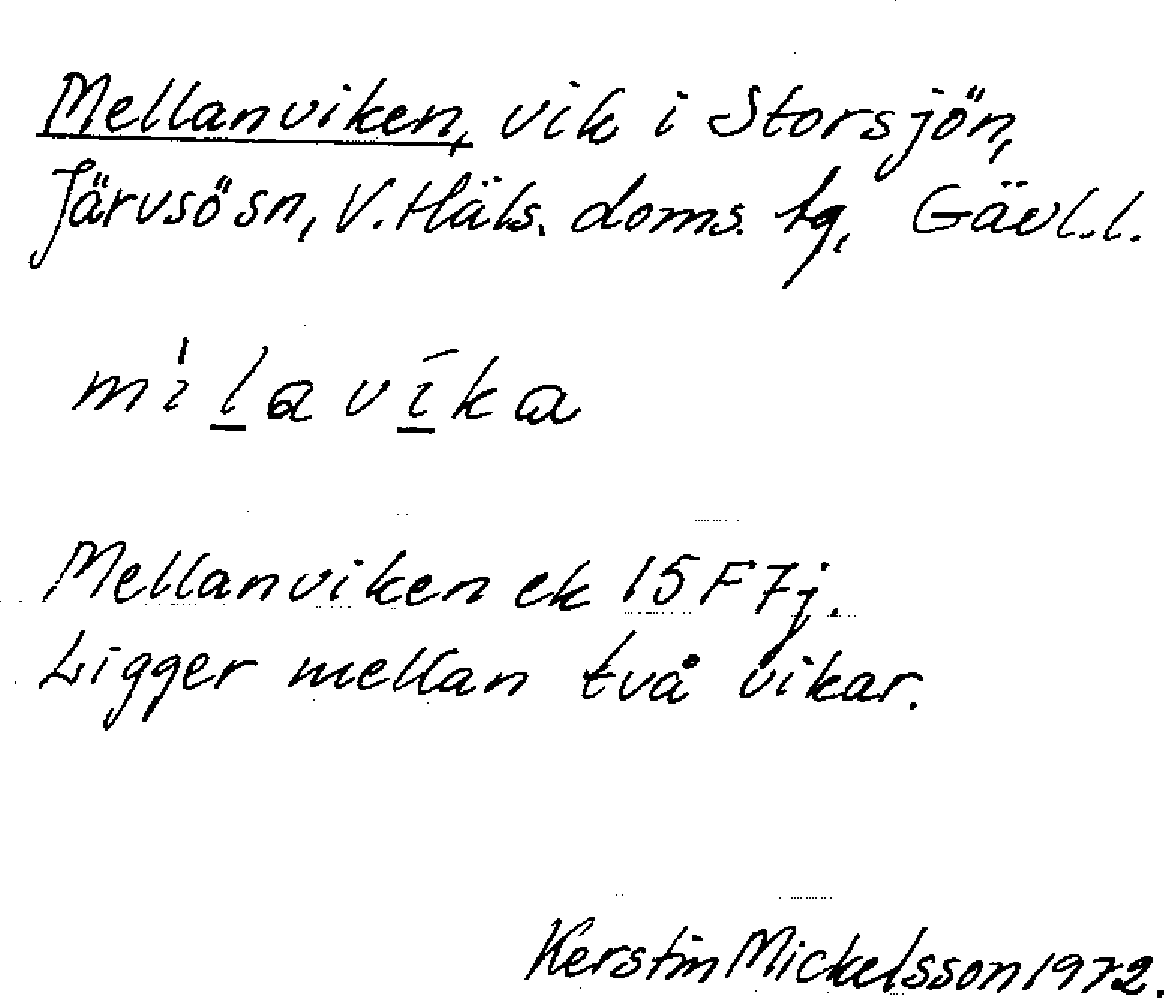 Mellanviken, vik i Storsjön,
Järvsö sn, V. Häls. doms. tg, Gävl. l.
mi̍l̲avī̲ka
Mellanviken ek 15F7j.
Ligger mellan två vikar.
Kerstin Mickelsson 1972.